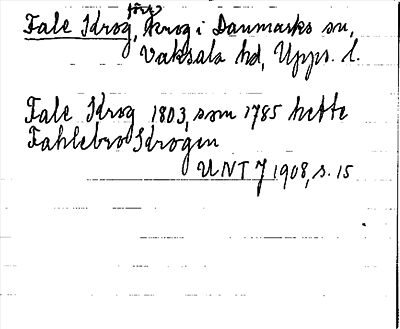 Fale Krog, förr krog i Danmarks sn,
Vaksala hd, Upps. l.
Fale Krog 1803, som 1785 hette
Fahlebro Krogen
UNT J 1908, s. 15